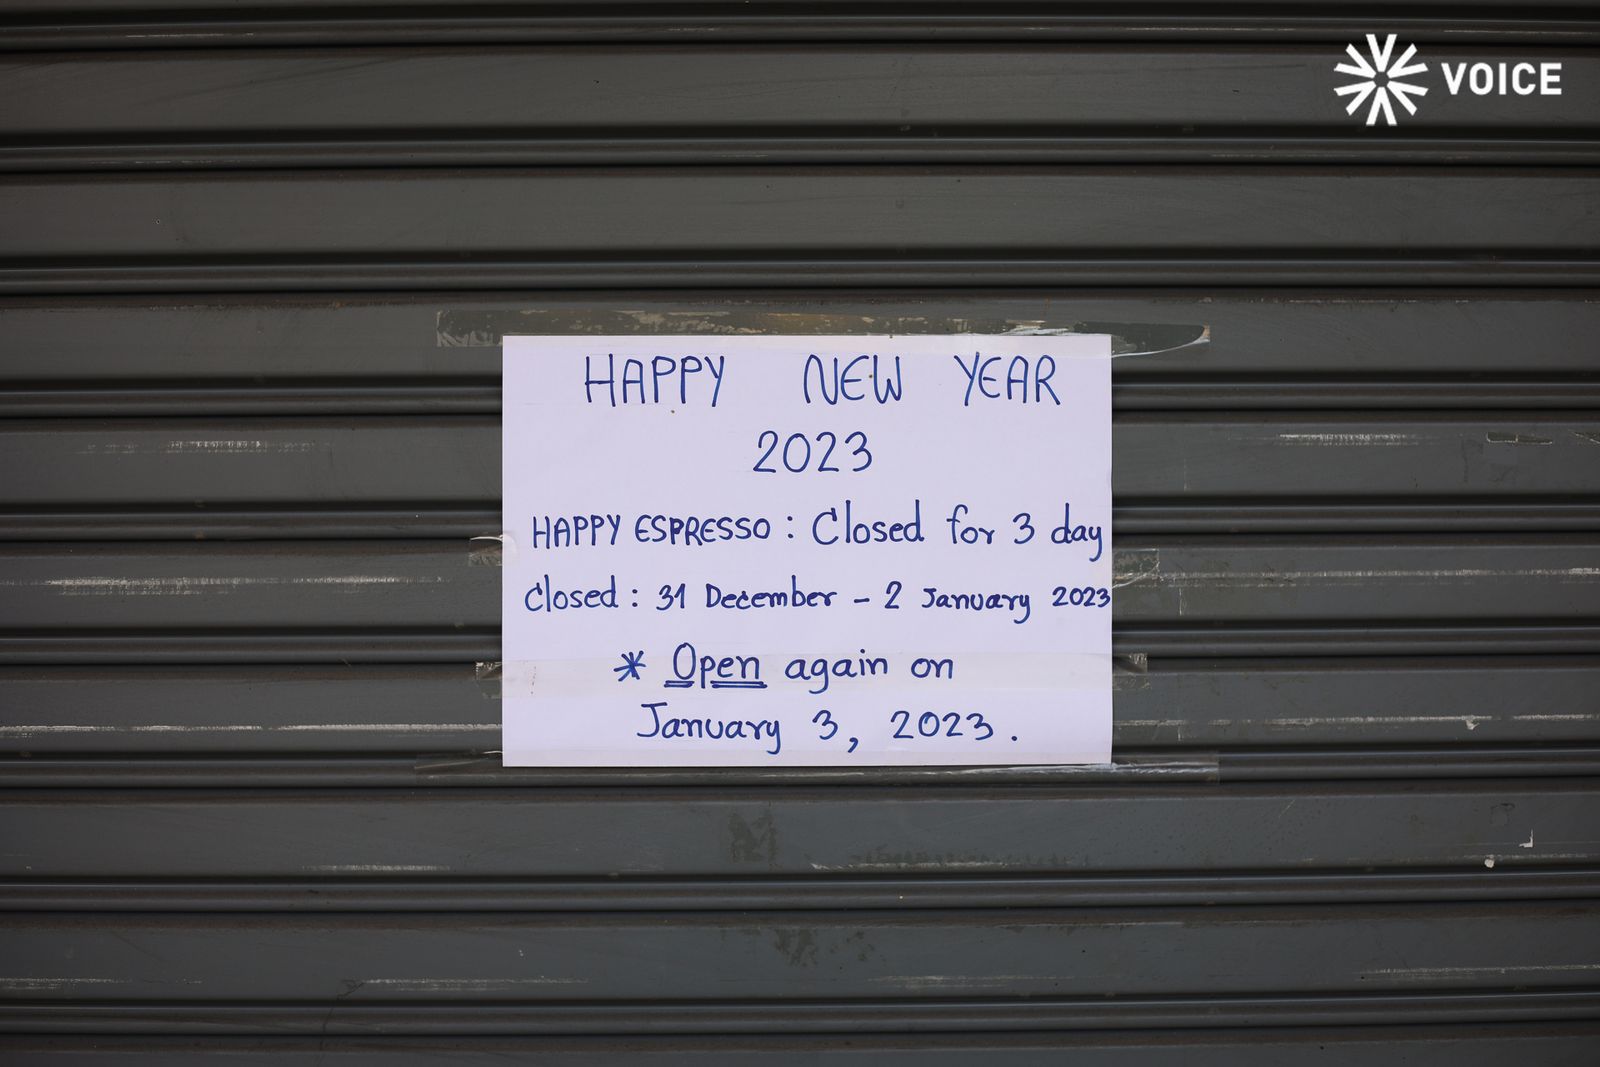 VOICE
HAPPY NEW YEAR
2023
HAPPY ESPRESSO : Closed for 3 day
Closed : 31 December - 2 January 2023
* Open again on
January 3, 2023.